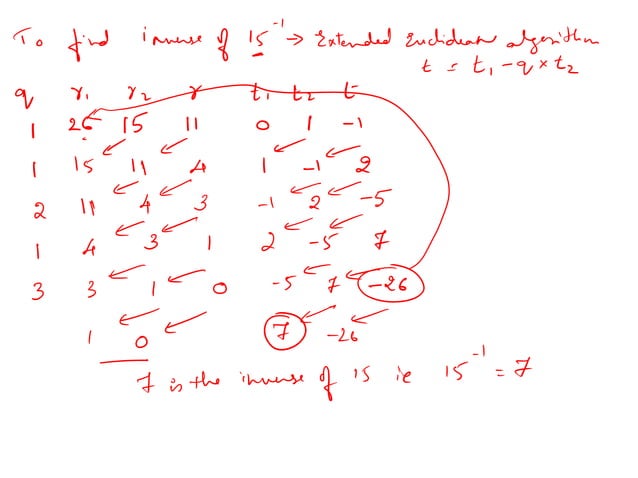 To find inverse of 15⁻¹ → Extended Euclidean algorithm
t = t₁ - q × t₂
q r₁ r₂ r t₁ t₂ t
1 26 15 11 0 1 -1
1 15 11 4 1 -1 2
2 11 4 3 -1 2 -5
1 4 3 1 2 -5 7
3 3 1 0 -5 7 -26
1 0 7 -26
7 is the inverse of 15 ie 15⁻¹ = 7